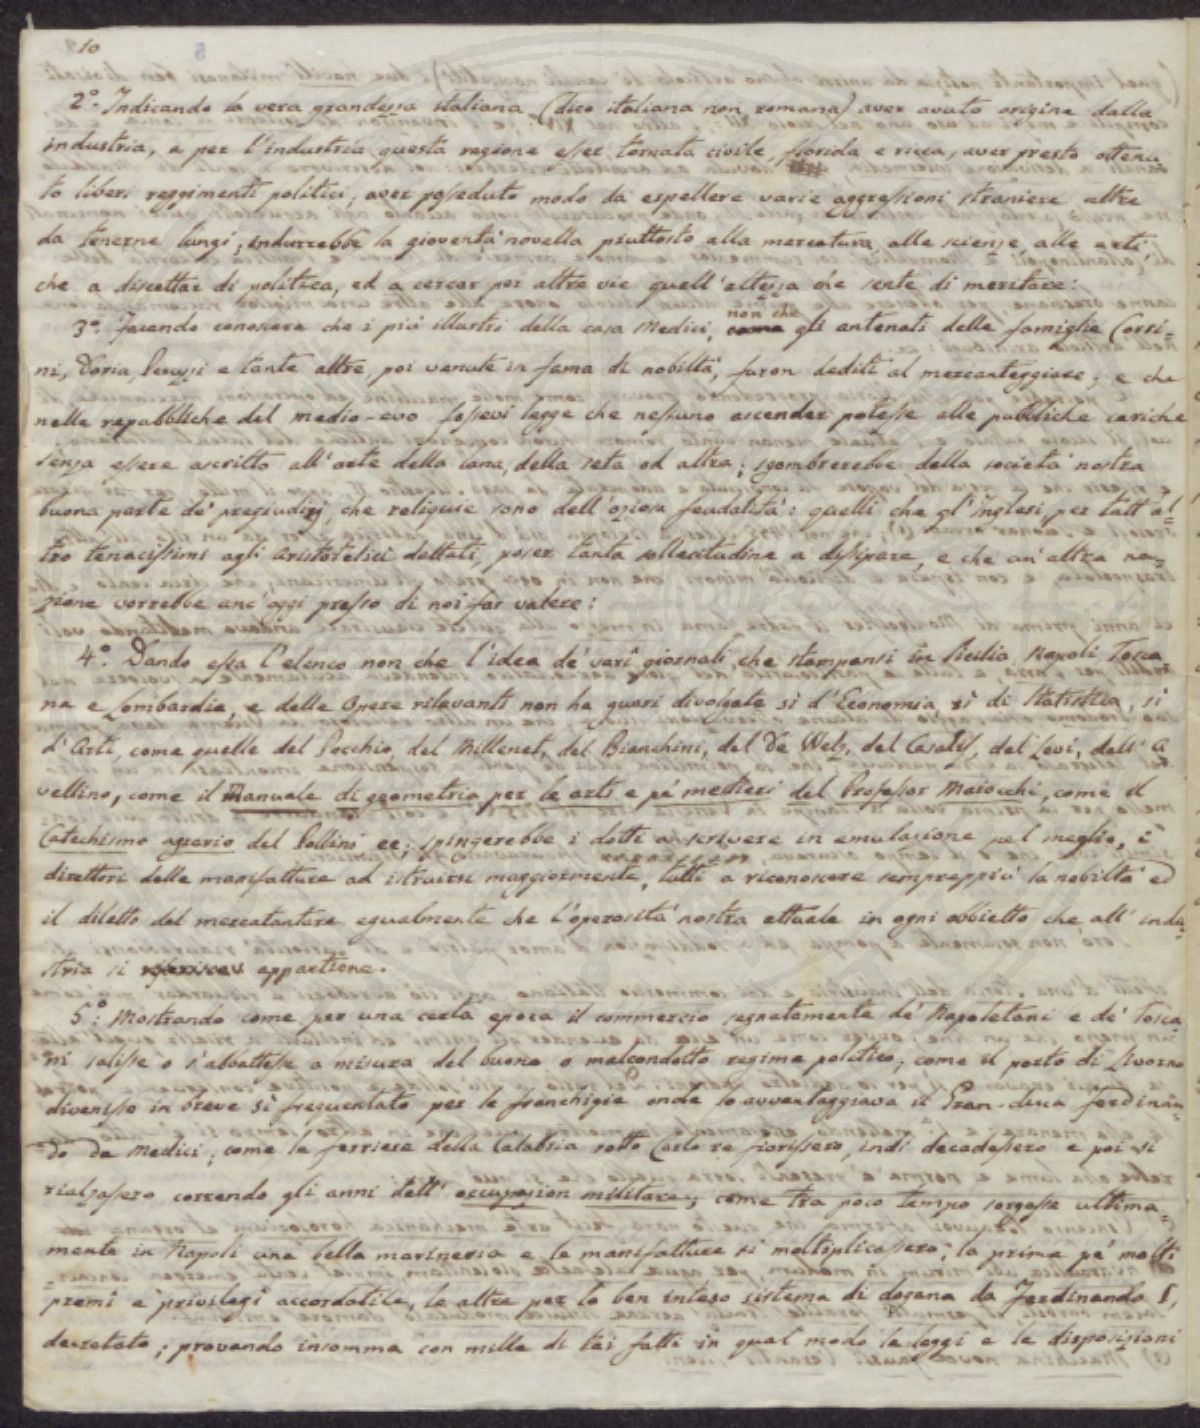 10
5
2.° Indicando la vera grandezza italiana (dico italiana non romana) aver avuto origine dalla
industria, e per l'industria questa regione esser tornata civile, florida e ricca, aver presto ottenu-
to liberi reggimenti politici, aver posseduto modo da espellere varie aggressioni straniere altre
da tenerne lungi; indurrebbe la gioventù novella piuttosto alla mercatura, alle scienze, alle arti
che a discettar di politica, ed a cercar per altre vie quell'altezza ch'e' sente di meritare:
3.° Facendo conoscere che i più illustri della casa Medici, non che gli antenati delle famiglie Corsi-
ni, Doria, Peruzzi e tante altre, poi venute in fama di nobiltà, furon dediti al mercanteggiare; e che
nelle repubbliche del medio-evo fossevi legge che nessuno ascender potesse alle pubbliche cariche
senza essere ascritto all'arte della lana, della seta od altra; sgombrerebbe della società nostra
buona parte de' pregiudizj, che reliquie sono dell'oziosa feudalità: quelli che gl'Inglesi, per tutt'al-
tro tenacissimi agli aristotelici dettati, poser tanta sollecitudine a dissipare, e che un'altra na-
zione vorrebbe anc'oggi presso di noi far valere:
4.° Dando essa l'elenco non che l'idea de' varî giornali che stampansi in Sicilia Napoli Tosca
na e Lombardia, e delle Opere rilevanti non ha guari divolgate sì d'Economia, sì di Statistica, sì
d'Arti, come quelle del Pecchio, del Millenet, del Bianchini, del De Welz, del Casalis, del Levi, dell'A
vellino, come il Manuale di geometria per le arti e pé mestieri del Professor Maiocchi, come il
Catechismo agrario del Pollini ec; spingerebbe i dotti a scrivere in emulazione pel meglio, i
direttori delle manifatture ad istruirsi maggiormente, tutti a riconoscere sempreppiù la nobiltà ed
il diletto del mercatantare egualmente che l'operosità nostra attuale in ogni obbietto che all'indu-
stria si appartiene.
5.° Mostrando come per una certa epoca il commercio segnatamente de' Napoletani e de' Tosca
ni salisse o s'abbattesse a misura del buono o malcondotto regime politico; come il porto di Livorno
divenisse in breve sì frequentato per le franchigie onde lo avvantaggiava il Gran-duca Ferdinan-
do de Medici; come le ferriere della Calabria sotto Carlo re fiorissero, indi decadessero e poi si
rialzassero correndo gli anni dell'occupazion militare; come tra poco tempo sorgesse ultima-
mente in Napoli una bella marineria e le manifatture si moltiplicassero; la prima pe' molti
premi e privilegi accordatile, le altre per lo ben inteso sistema di dogana da Ferdinando I,
decretato; provando insomma con mille di tai fatti in qual modo le leggi e le disposizioni